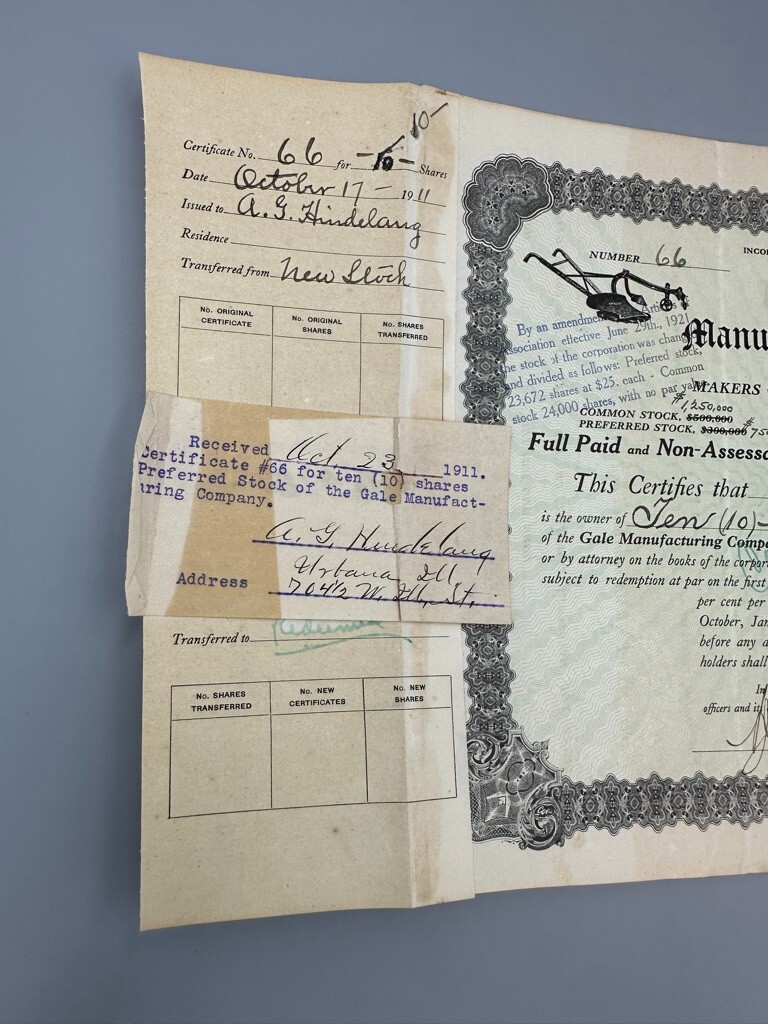 10-
Certificate No. 66 for -10- Shares
Date October 17- 1911
Issued to A. G. Hindelang
Residence
Transferred from New Stock
No. ORIGINAL CERTIFICATE
No. ORIGINAL SHARES
No. SHARES TRANSFERRED
Received Oct. 23 1911.
Certificate #66 for ten (10) shares
Preferred Stock of the Gale Manufact-
uring Company.
A. G. Hindelang
Urbana Ill
Address 704½ W. Ill. St.
Transferred to Redeemed
No. SHARES TRANSFERRED
No. NEW CERTIFICATES
No. NEW SHARES
NUMBER 66
INCO
By an amendment Articles of
Association effective June 29th, 1921
the stock of the corporation was chang
and divided as follows: Preferred stock,
23,672 shares at $25. each - Common
stock 24,000 shares, with no par
Manu
MAKERS
$1,250,000
COMMON STOCK, $500,000
PREFERRED STOCK, $300,000 $75
Full Paid and Non-Assess
This Certifies that
is the owner of Ten (10)-
of the Gale Manufacturing Comp
or by attorney on the books of the corpor
subject to redemption at par on the first
per cent per
October, Jan
before any
holders shall
In
officers and it